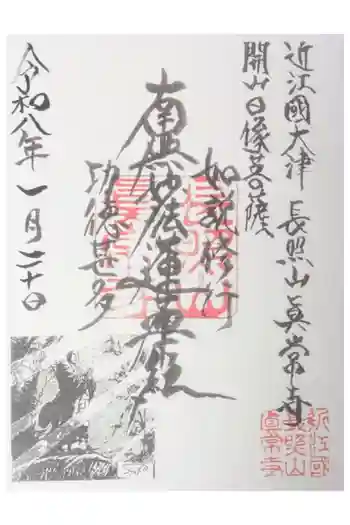 近江國大津 長照山 真常寺
開山日像菩薩
如説修行
南無妙法蓮華経
功徳甚多
令和八年一月二十日
近江國
長照山
真常寺